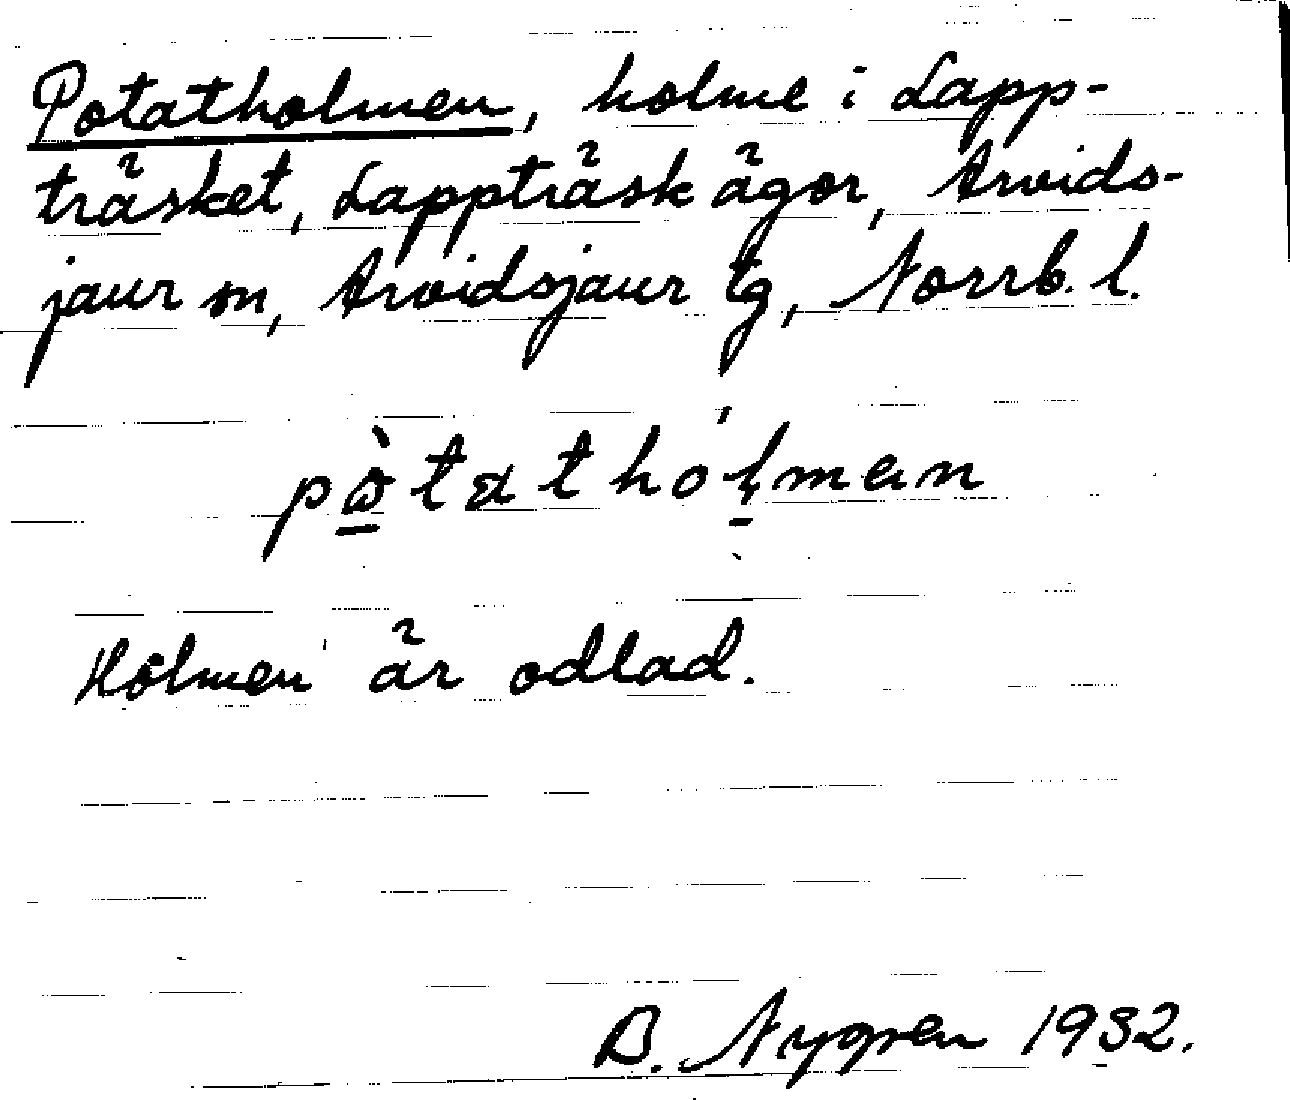 Potatholmen, holme i Lapp-
träsket, Lappträsk ägor, Arvids-
jaur sn, Arvidsjaur tg, Norrb. l.
pὼtatholmen
Holmen är odlad.
B. Nygren 1932.